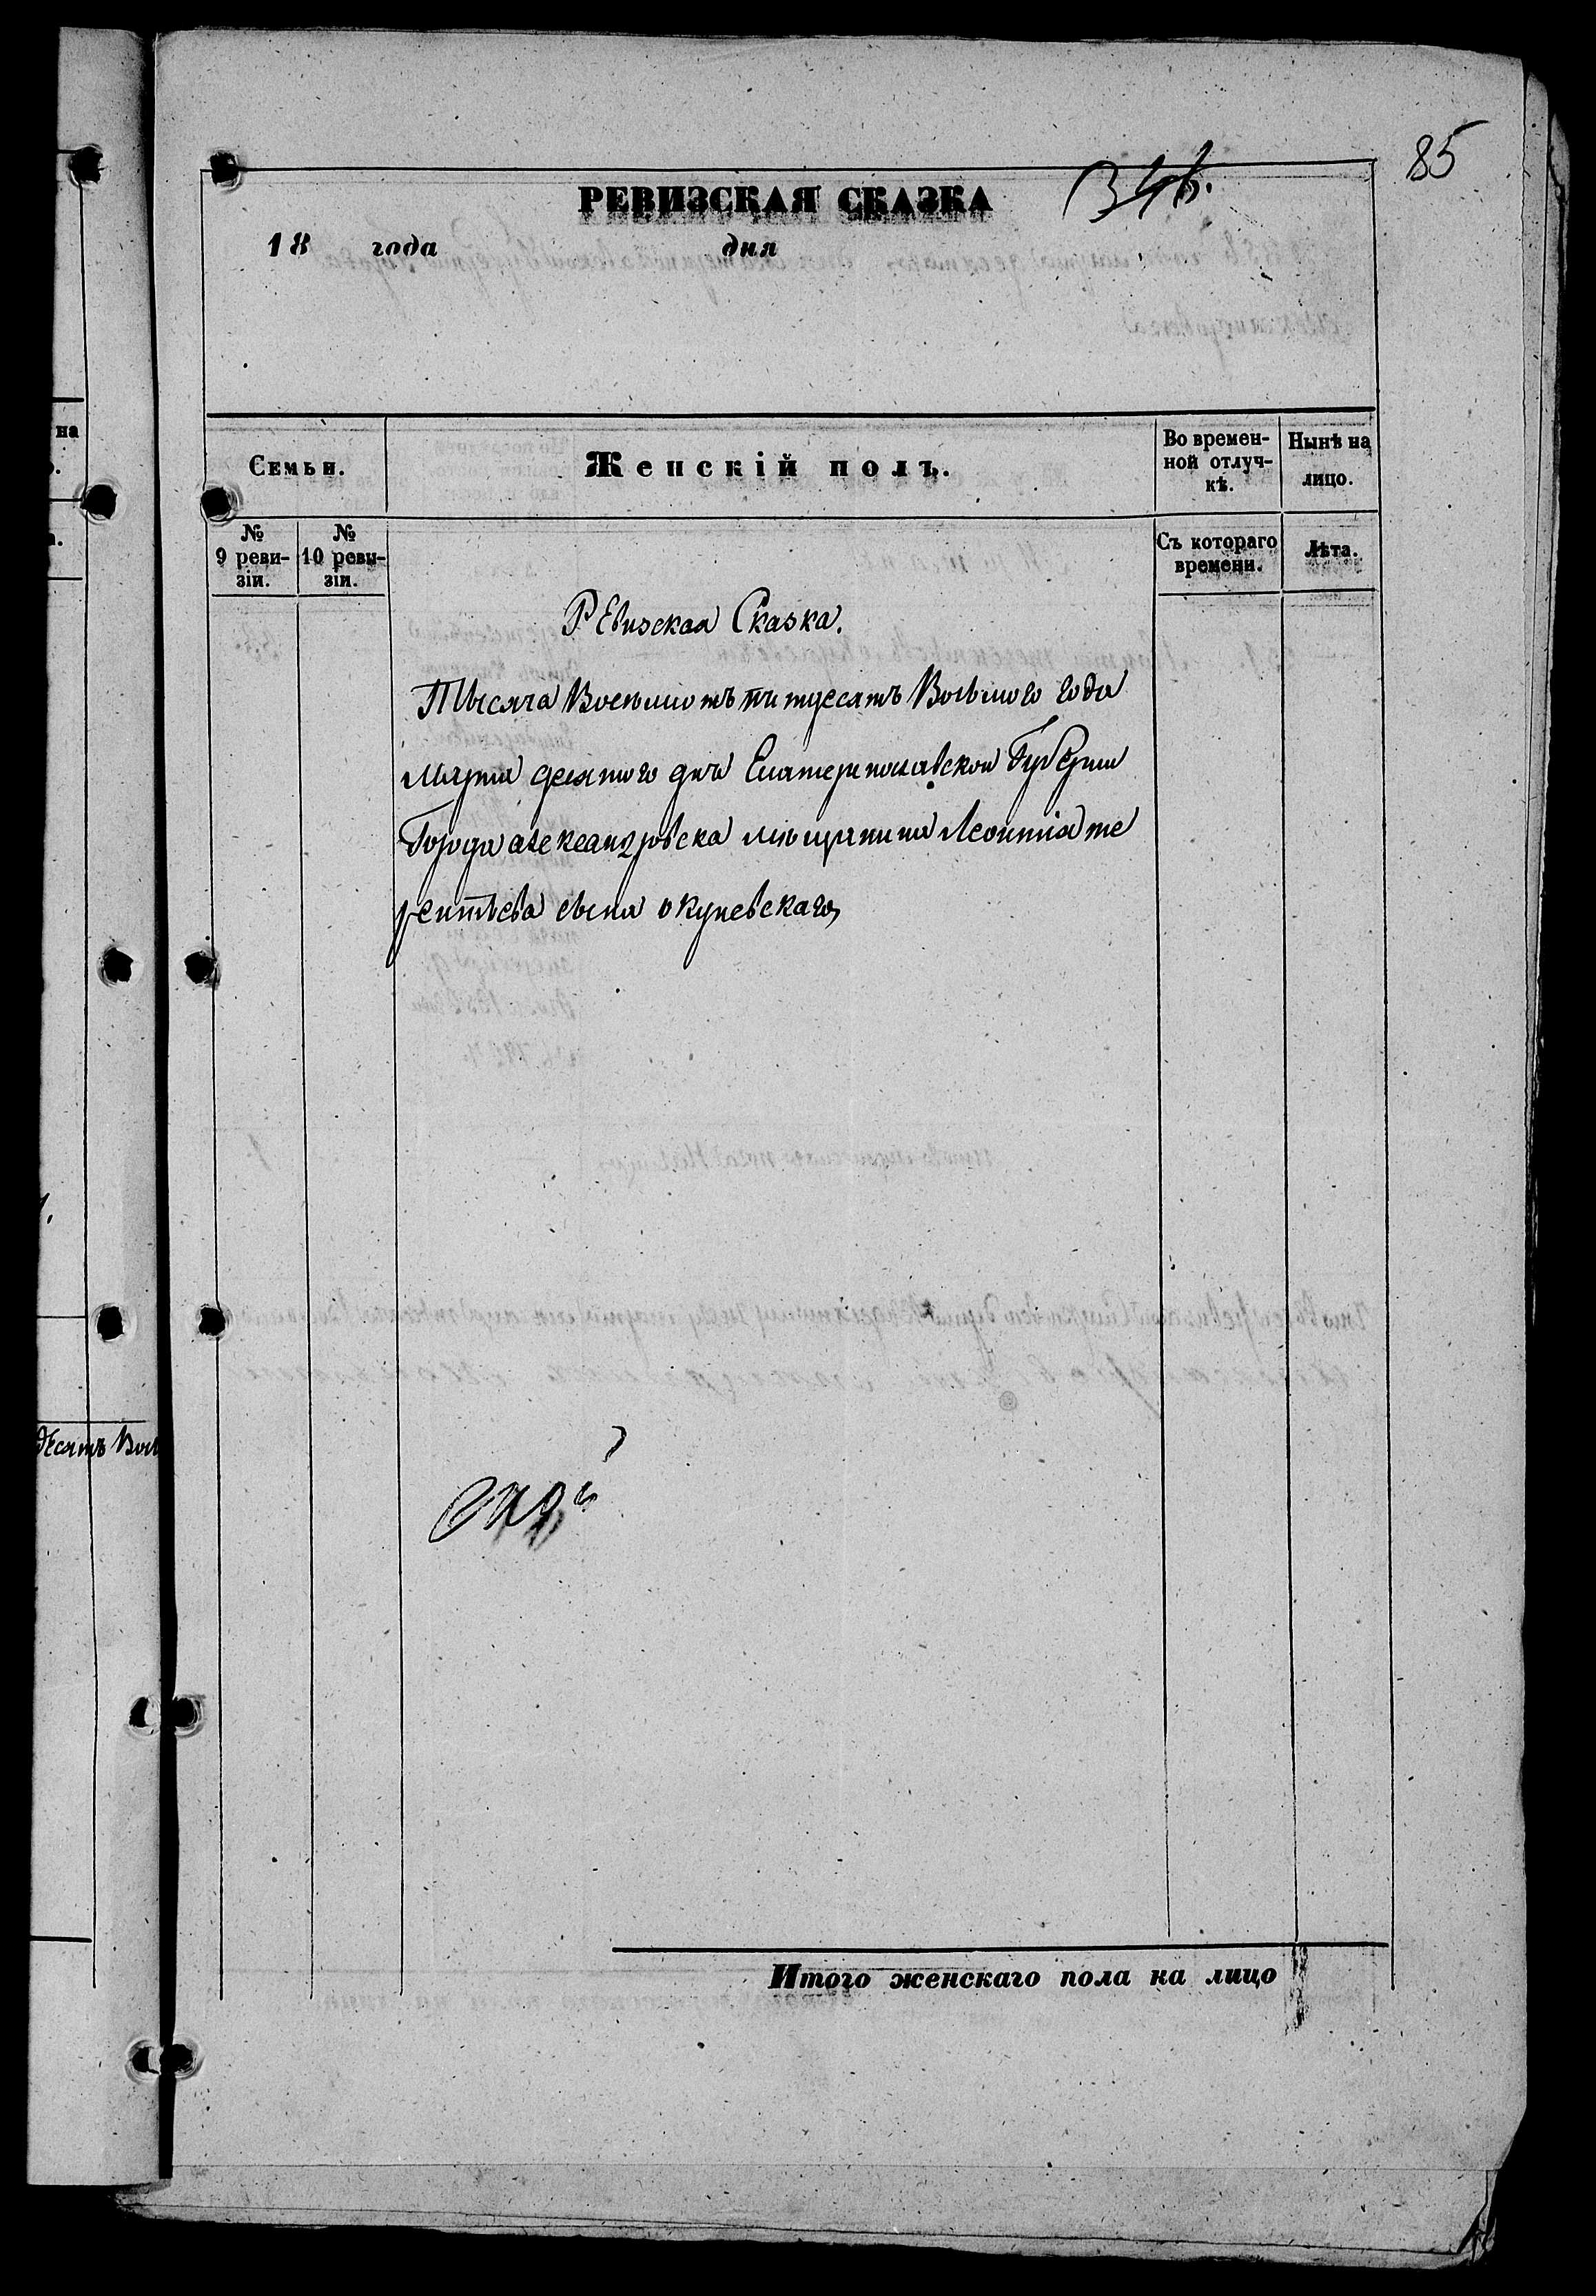 85
РЕВИЗСКАЯ СКАЗКА
18 года дня
Семьи.
Женскій полъ.
Во времен-
ной отлуч-
кѣ.
Нынѣ на
лицо.
№
9 реви-
зіи.
№
10 реви-
зіи.
Съ котораго
времени.
Лѣта.
Ревизская Сказка.
Тысяча Восемьсотъ пятдесятъ Восьмого года
Марта десятого дня Екатеринославской Губерніи
Города александровска мѣщанина Леонтія те
рентьева сына окуневскаго
Итого женскаго пола на лицо
на
десятъ Вось